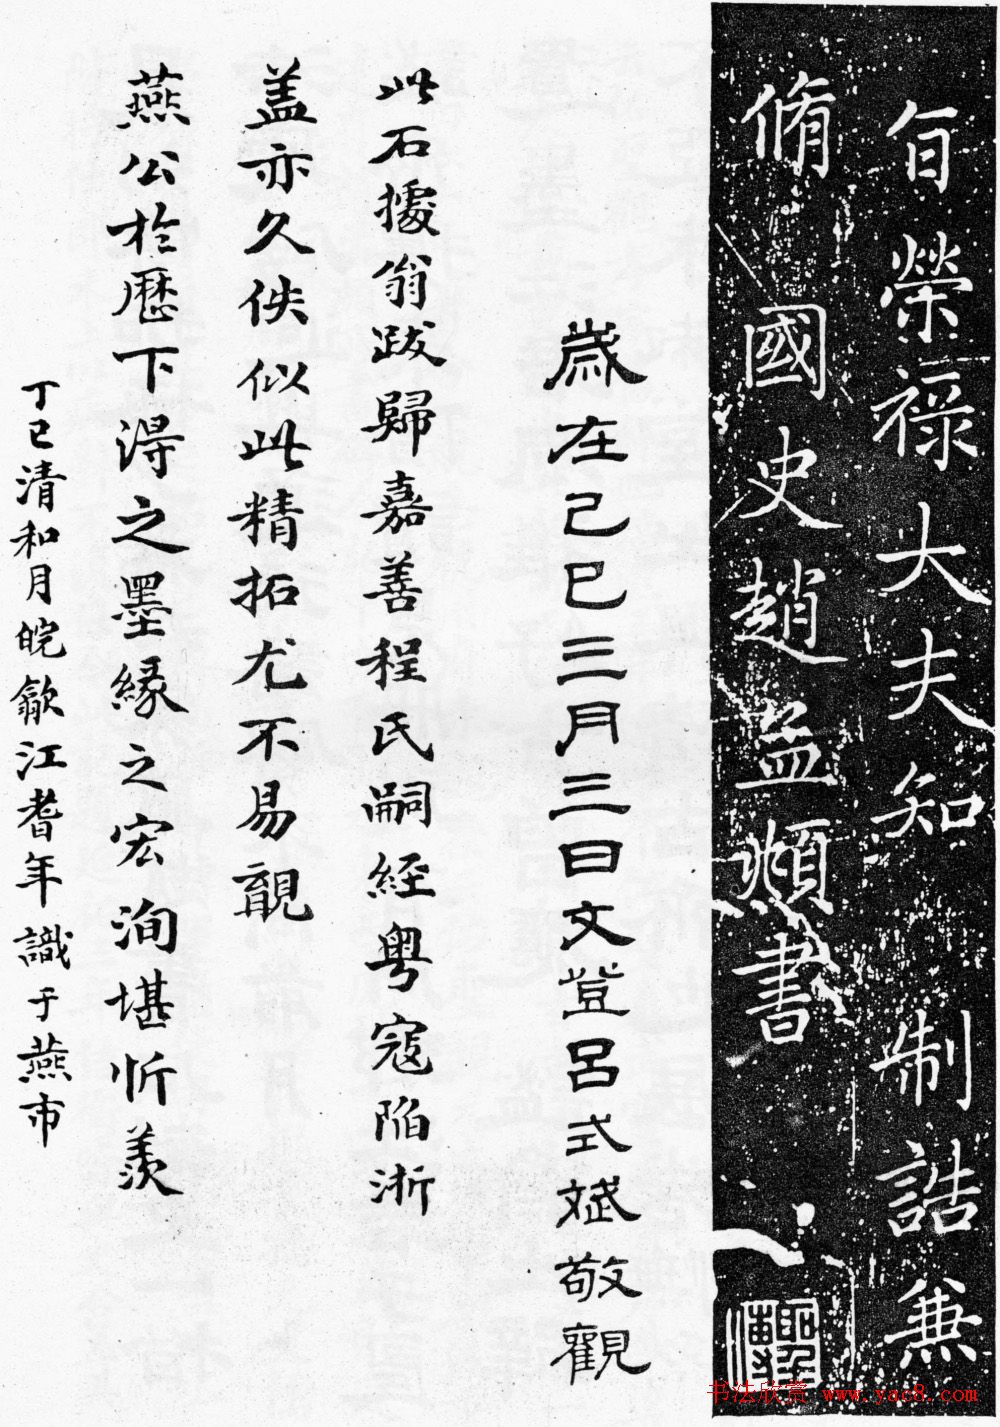 旨榮祿大夫知 制誥兼
脩國史趙孟頫書
歲在己巳三月三日文登呂式斌敬觀
此石據翁跋歸嘉善程氏嗣經粤寇陷浙
盖亦久佚似此精拓尤不易
燕公於歷下得之墨緣之宏洵堪忻羨
丁巳清和月皖歙江耆年識于燕市
书法欣赏 www.yac8.com